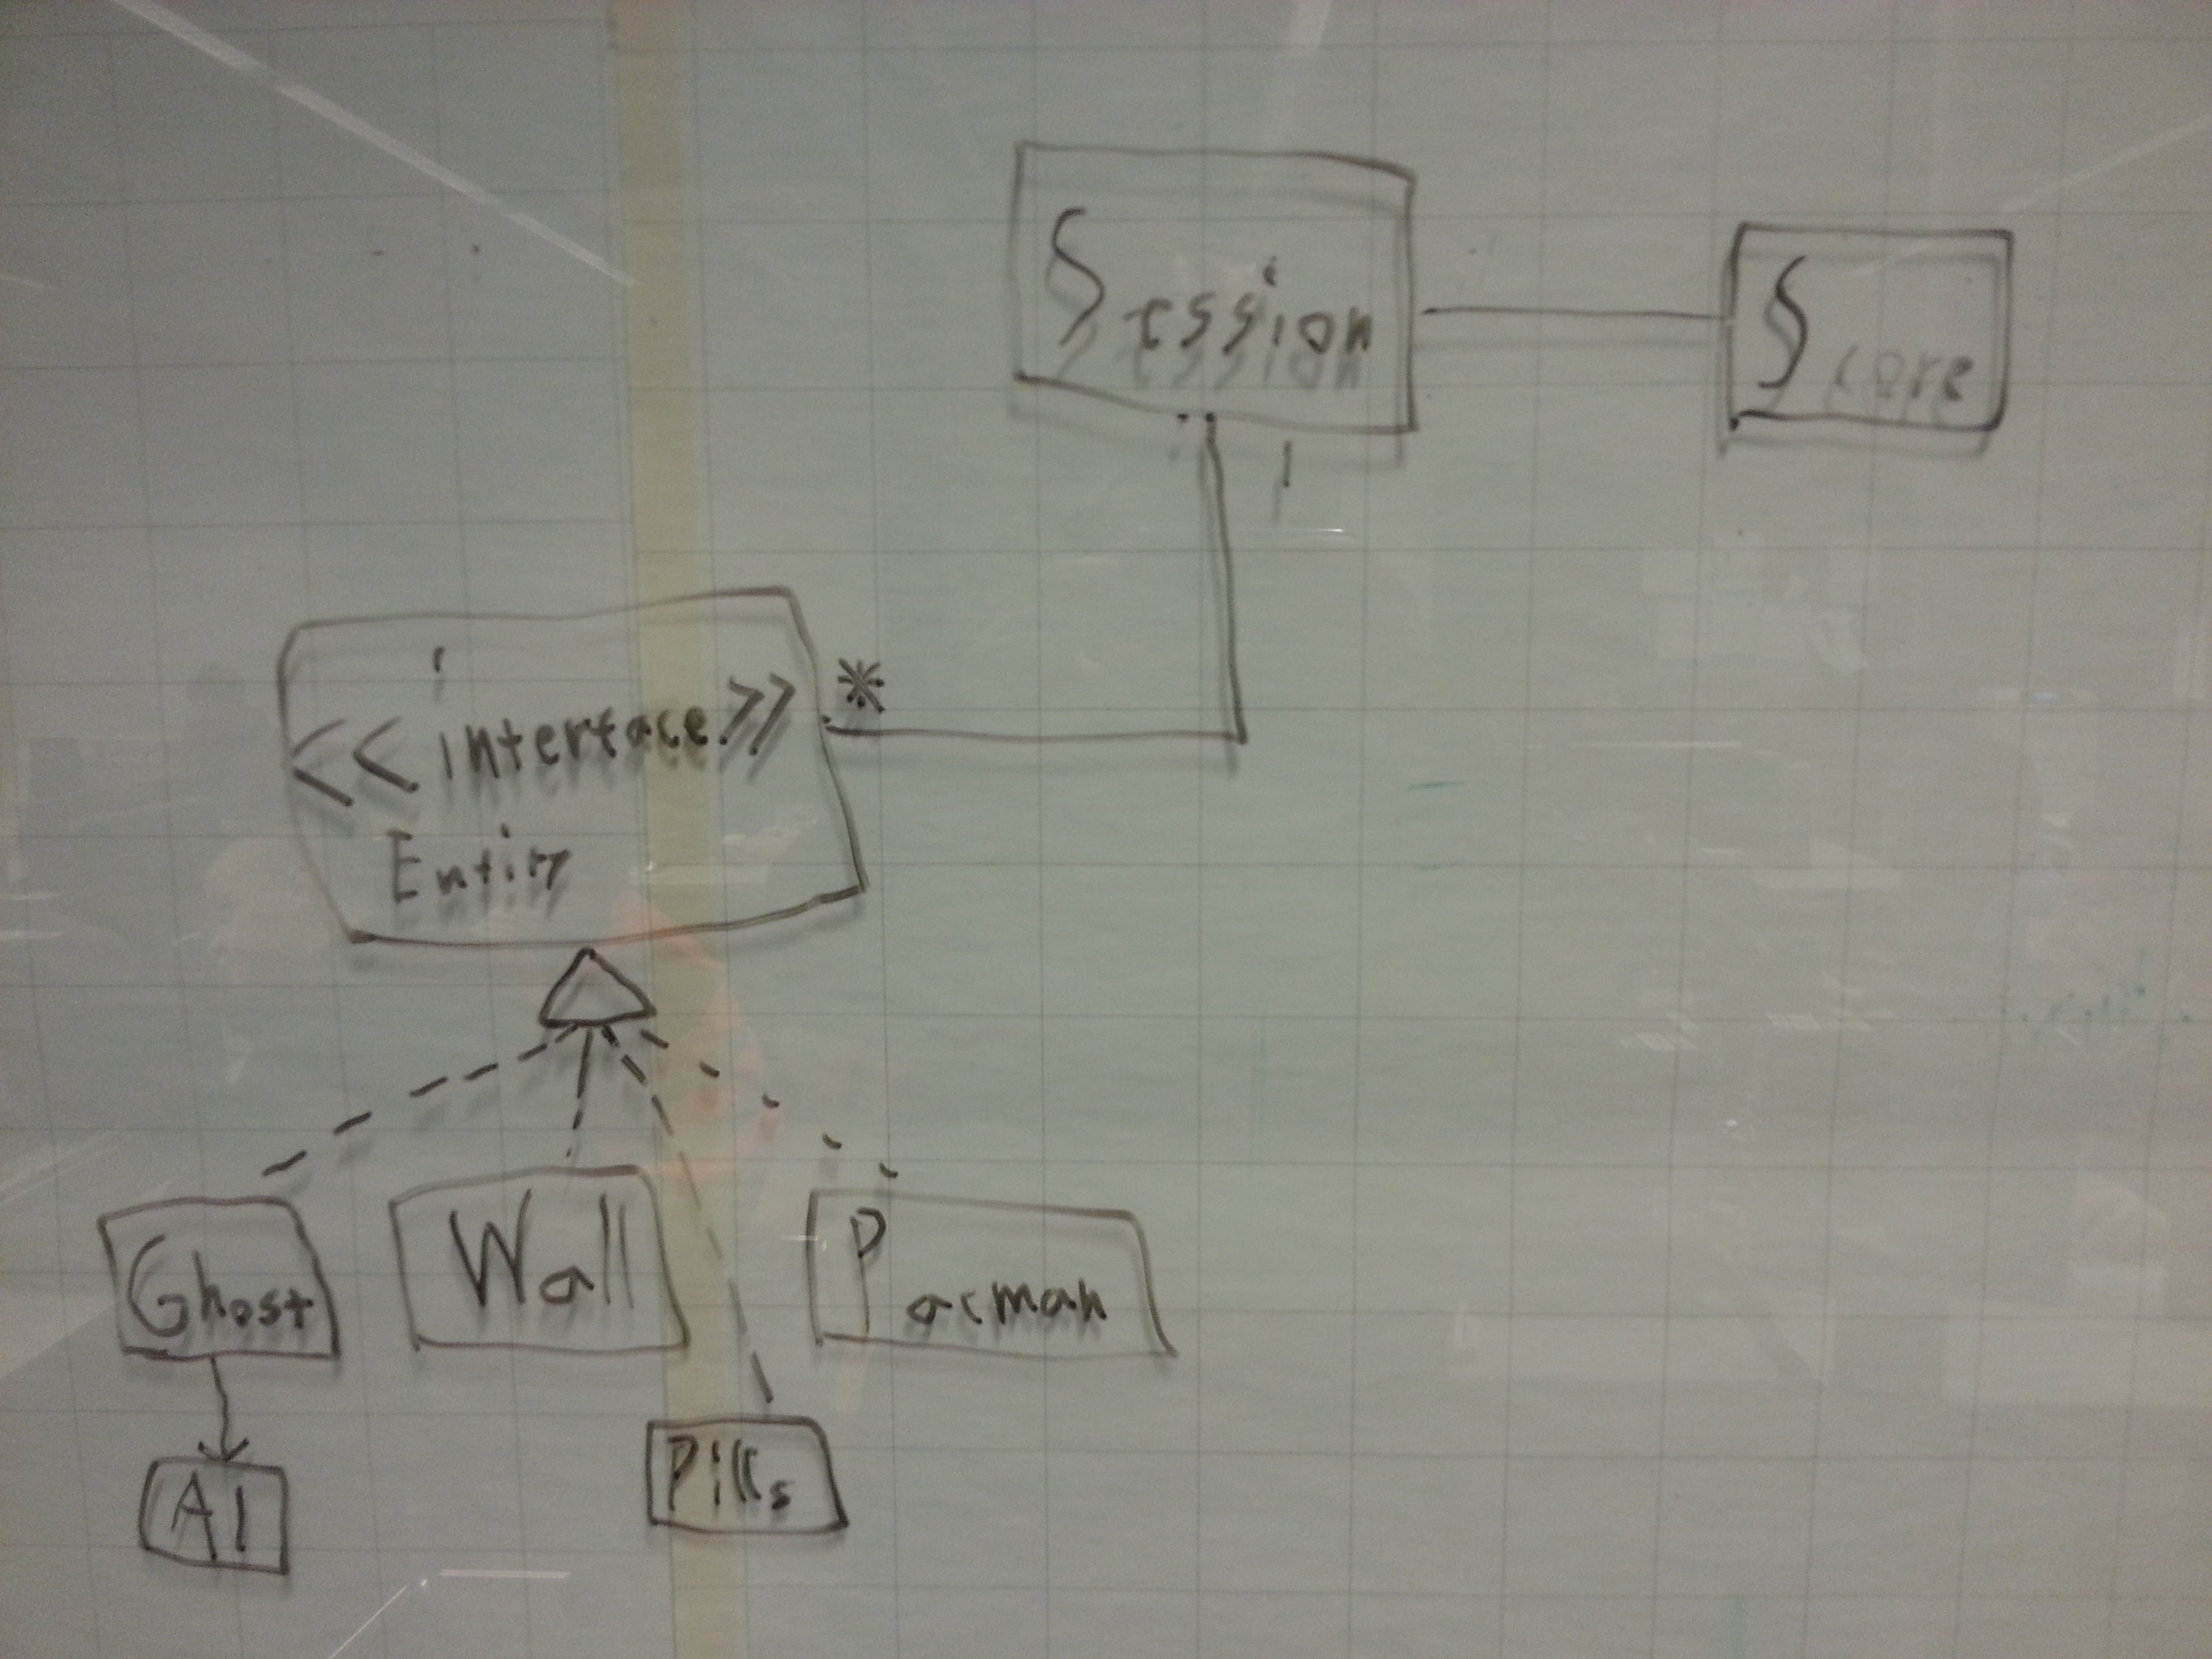 Session
Score
1
*
<<interface>>
Entity
Ghost
Wall
Pacman
Pills
AI